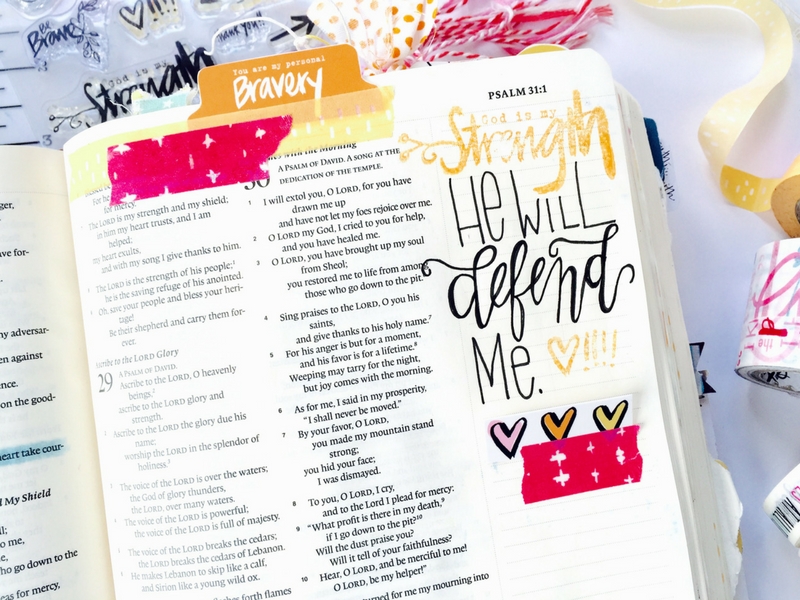 be
Brave
thank you!
God is my
Strength
You are my personal
Bravery
PSALM 31:1
God is my
Strength
He will
defend
Me. !!!!
ger,
ave for-
my adversar-
en against
ence.
on the good-
heart take cour-
l My Shield
ll;
o me,
ho go down to the
eas for mercy,
for mercy.
The LORD is my strength and my shield;
in him my heart trusts, and I am
helped;
my heart exults,
and with my song I give thanks to him.
The LORD is the strength of his people;
he is the saving refuge of his anointed.
Oh, save your people and bless your heri-
tage!
Be their shepherd and carry them for-
ever.
Ascribe to the LORD Glory
29 A PSALM OF DAVID.
Ascribe to the LORD, O heavenly
beings,
ascribe to the LORD glory and
strength.
Ascribe to the LORD the glory due his
name;
worship the LORD in the splendor of
holiness.
The voice of the LORD is over the waters;
the God of glory thunders,
the LORD, over many waters.
The voice of the LORD is powerful;
the voice of the LORD is full of majesty.
The voice of the LORD breaks the cedars;
the LORD breaks the cedars of Lebanon.
He makes Lebanon to skip like a calf,
and Sirion like a young wild ox.
flashes forth flames
with the Morning
30 A PSALM OF DAVID. A SONG AT THE
DEDICATION OF THE TEMPLE.
1 I will extol you, O LORD, for you have
drawn me up
and have not let my foes rejoice over me.
2 O LORD my God, I cried to you for help,
and you have healed me.
3 O LORD, you have brought up my soul
from Sheol;
you restored me to life from among
those who go down to the pit.
4 Sing praises to the LORD, O you his
saints,
and give thanks to his holy name.7
5 For his anger is but for a moment,
and his favor is for a lifetime.8
Weeping may tarry for the night,
but joy comes with the morning.
6 As for me, I said in my prosperity,
"I shall never be moved."
7 By your favor, O LORD,
you made my mountain stand
strong;
you hid your face;
I was dismayed.
8 To you, O LORD, I cry,
and to the Lord I plead for mercy:
9 "What profit is there in my death,9
if I go down to the pit?10
Will the dust praise you?
Will it tell of your faithfulness?
10 Hear, O LORD, and be merciful to me!
O LORD, be my helper!"
turned for me my mourning into